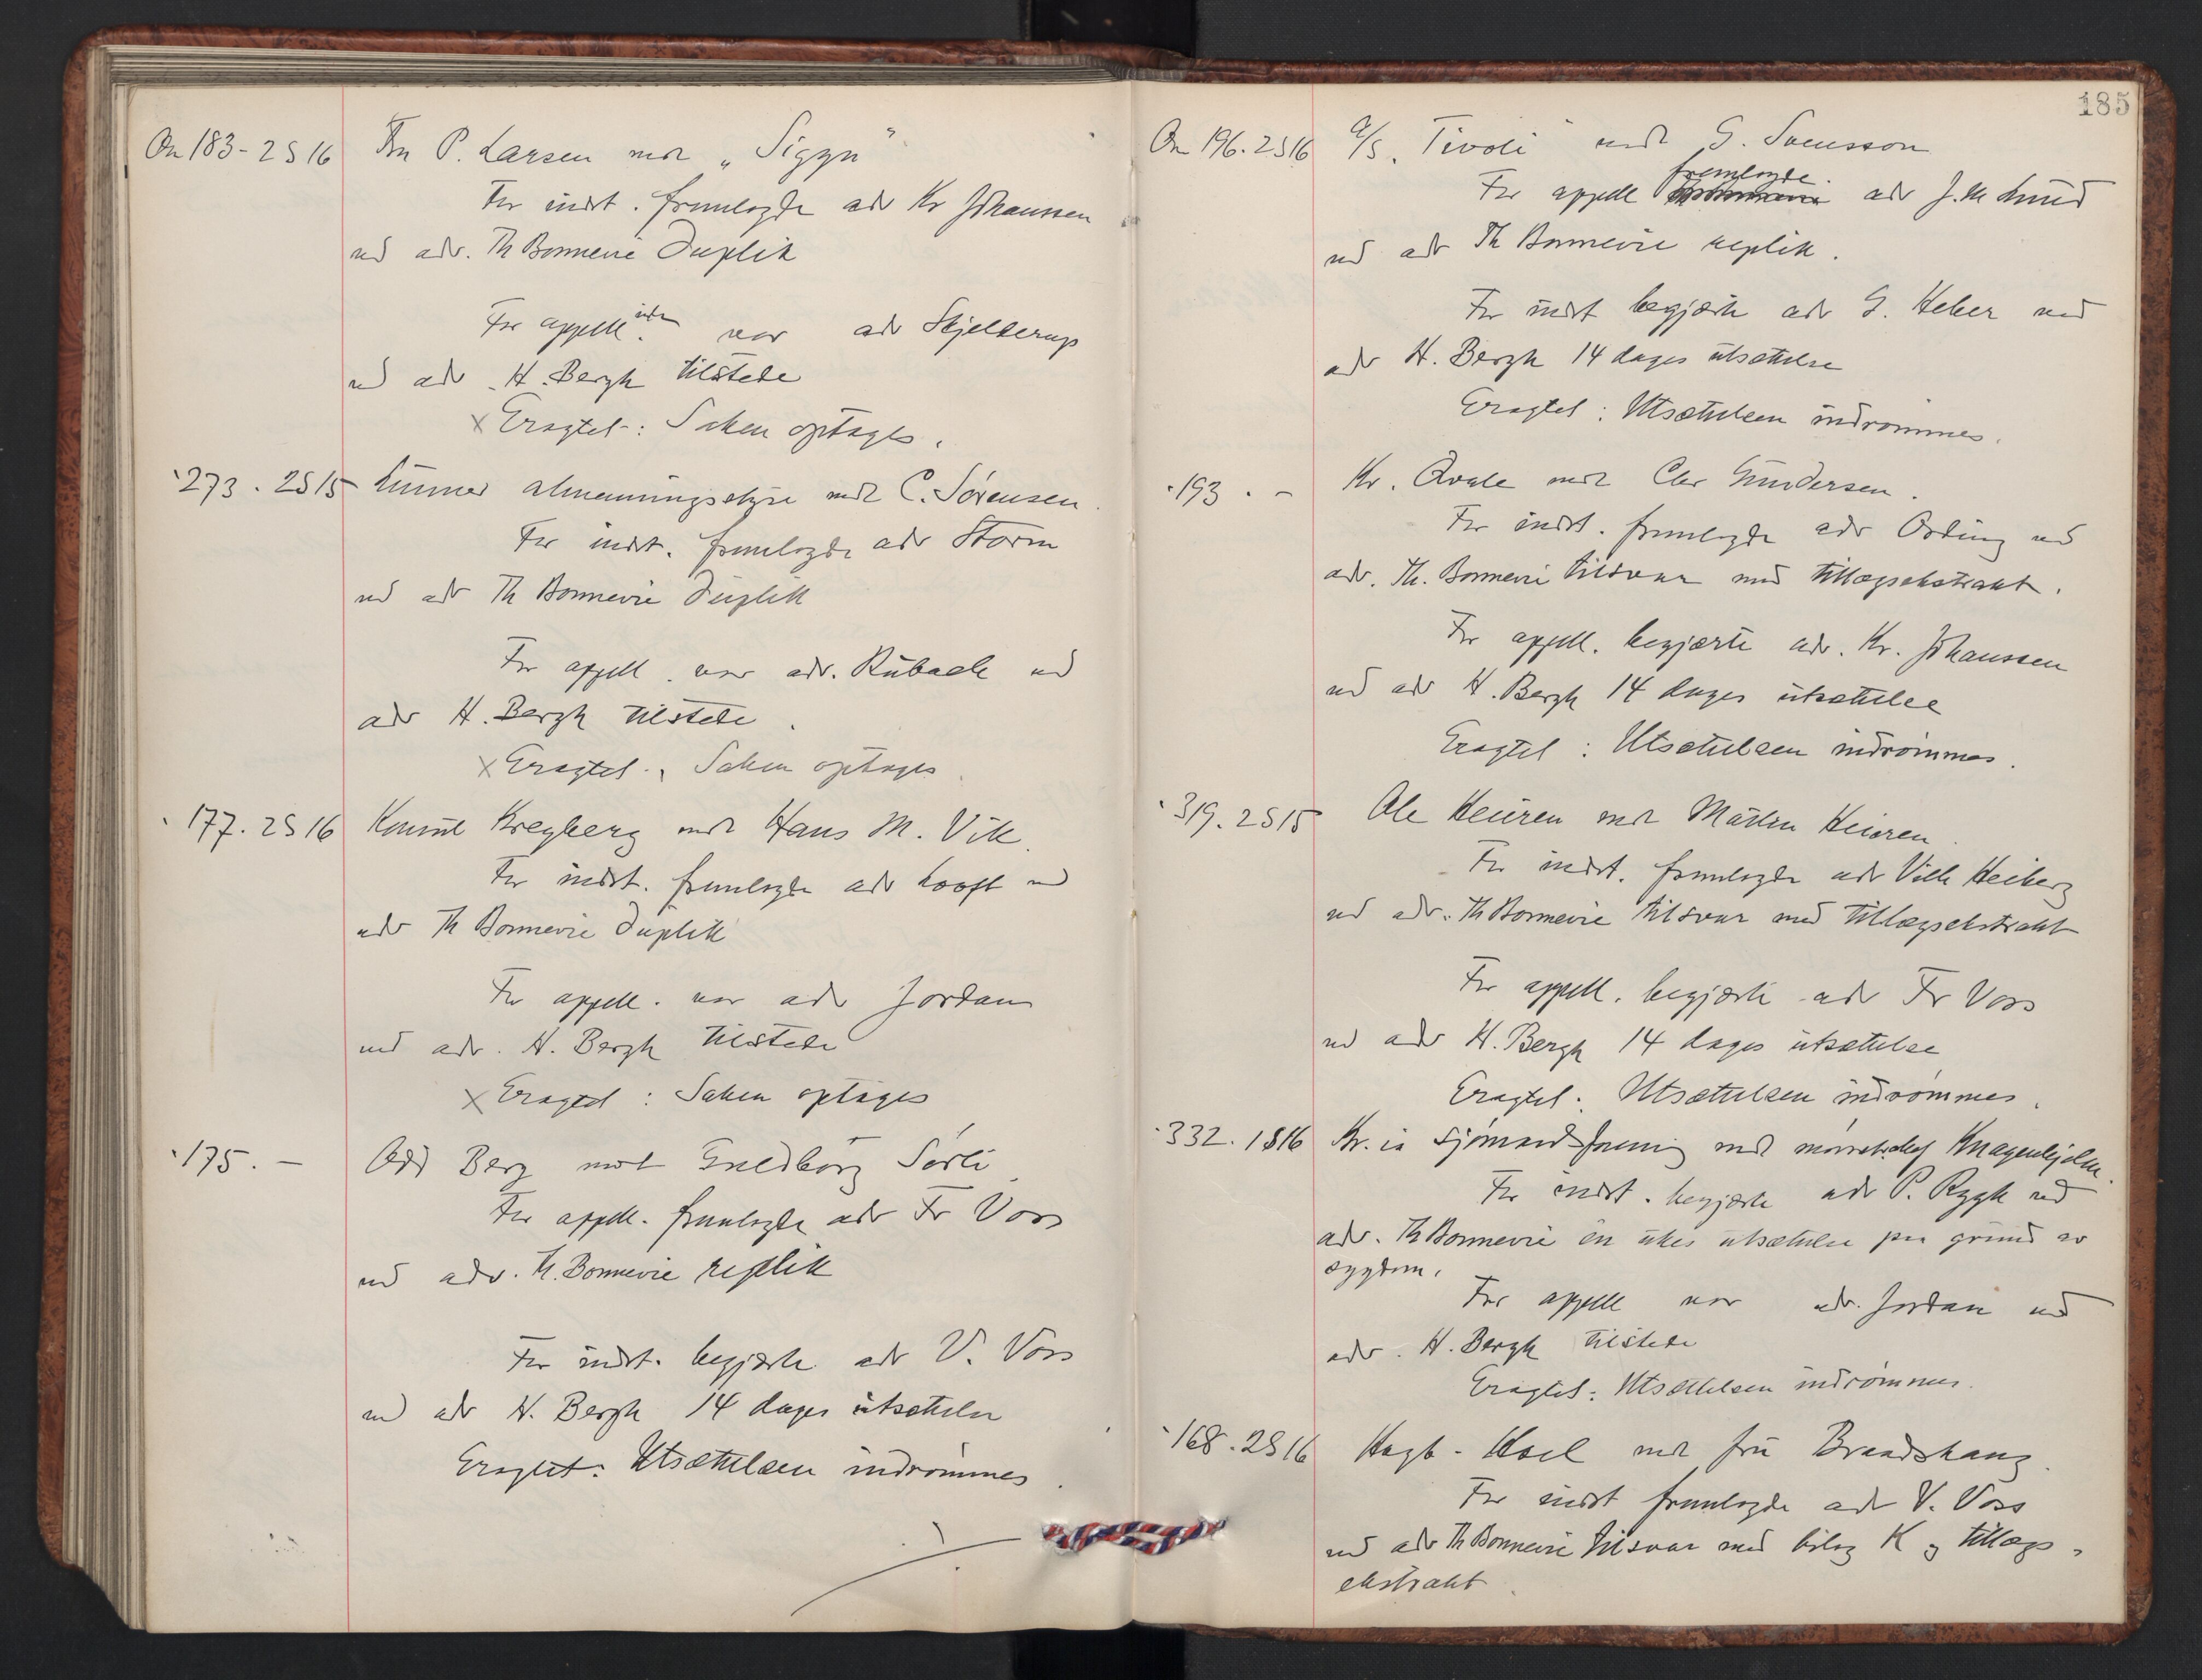 On 183 - 2 S 16 P. Larsen mot „Sigyn"
For indst. fremlagde adv Kr Johanssen
ved adv. Th Bonnevie Duplik
For appell. var adv Skjelderup
ved adv. H. Bergh tilstede
x Eragtet: Saken optages.
" 273 . 2 S 15 Lunner almenningsstyre mot C. Sørensen.
For indst. fremlagde adv Storm
ved adv Th Bonnevie Duplik
For appell. var adv. Rubach ved
adv H. Bergh tilstede.
x Eragtet: Saken optages.
" 177. 2 S 16 Konsul Kreyberg mot Hans M. Vik.
For indst. fremlagde adv Looft ved
adv Th Bonnevie Duplik
For appell. var adv Jordan
ved adv. H. Bergh tilstede
x Eragtet: Saken optages
" 175. - Odd Berg mot Guldborg Sørli.
For appell. fremlagde adv Fr Voss
ved adv. Th. Bonnevie replik
For indst. begjærte adv V. Voss
ved adv H. Bergh 14 dages utsættelse
Eragtet: Utsættelsen indrømmes.
185
On 196. 2 S 16 A/S „Tivoli" mot G. Svensson
fremlagde
For appell adv J. M Lund
ved adv Th Bonnevie replik.
For indst begjærte adv G. Heber ved
adv H. Bergh 14 dages utsættelse
Eragtet: Utsættelsen indrømmes.
" 193 . - Kr. Qvale mot Chr Gundersen.
For indst. fremlagde adv Ording ved
adv. Th. Bonnevie tilsvar med tillægsekstrakt.
For appell. begjærte adv. Kr. Johanssen
ved adv H. Bergh 14 dages utsættelse
Eragtet: Utsættelsen indrømmes.
" 319. 2 S 15 Ole Heieren mot Marthin Heieren.
For indst. fremlagde adv Vilh Heiberg
ved adv. Th Bonnevie tilsvar med tillægsekstrakt
For appell. begjærte adv Fr Voss
ved adv H. Bergh 14 dages utsættelse
Eragtet: Utsættelsen indrømmes.
" 332. 1 S 16 Kr.ia Sjømandsforening mot Knagenhjelm.
For indst. begjærte adv P. Rygh ved
adv. Th Bonnevie en ukes utsættelse paa grund av
sygdom.
For appell var adv. Jordan ved
adv. H. Bergh tilstede
Eragtet: Utsættelsen indrømmes.
" 168. 2 S 16 Hagb. Hoel mot fru Brandshaug.
For indst fremlagde adv V. Voss
ved adv Th Bonnevie tilsvar med bilag K og tillægs-
ekstrakt.